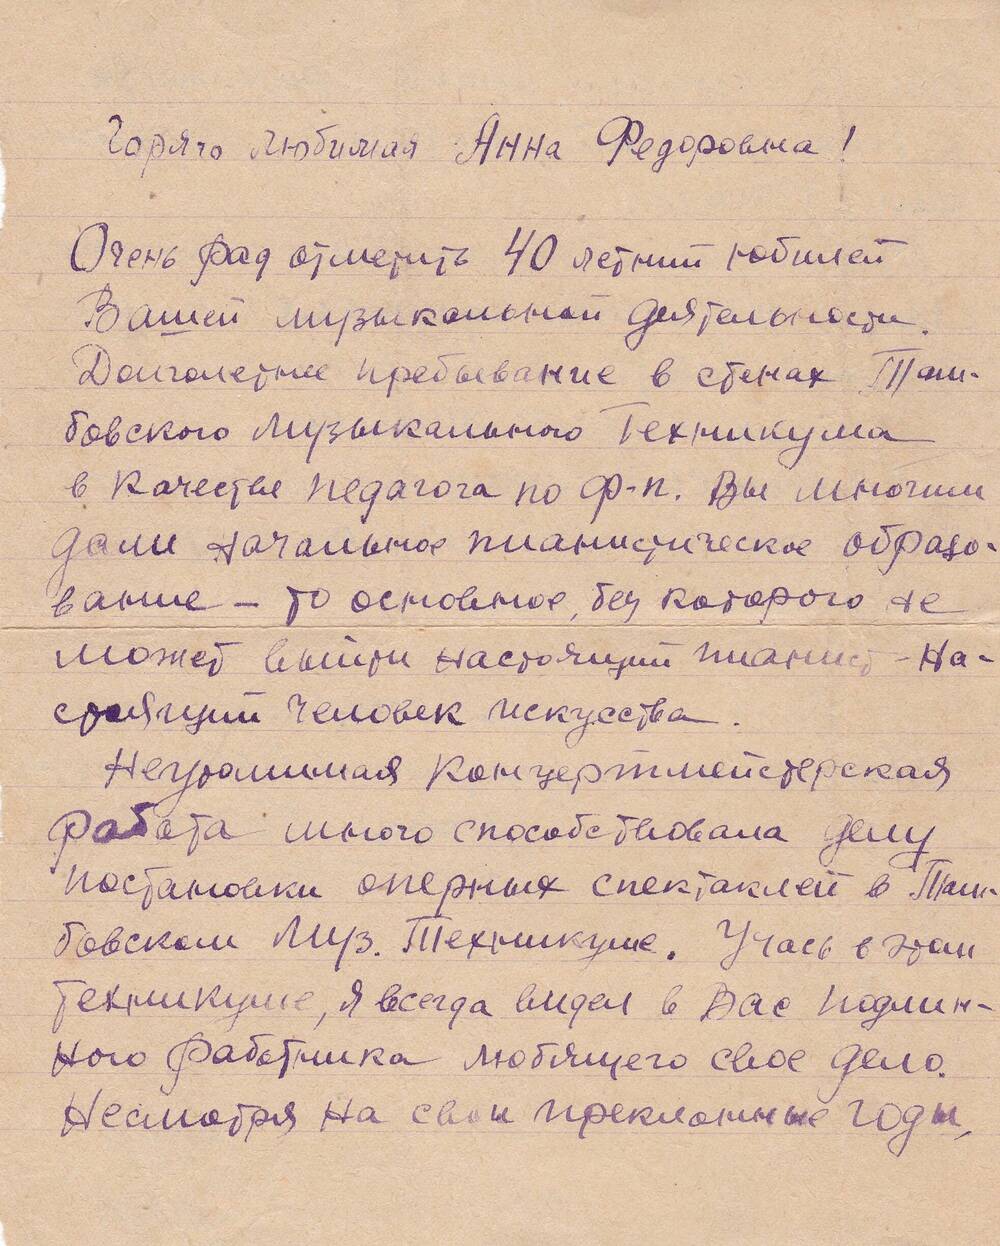 Горячо любимая Анна Федоровна!
Очень рад отметить 40 летний юбилей
Вашей музыкальной деятельности.
Долголетнее пребывание в стенах Там-
бовского Музыкального Техникума
в качестве педагога по ф-п. Вы многим
дали начальное пианистическое образо-
вание – то основное, без которого не
может выйти настоящий пианист – на-
стоящий человек искусства.
Неутомимая концертмейстерская
работа много способствовала делу
постановки оперных спектаклей в Там-
бовском Муз. Техникуме. Учась в этом
техникуме, я всегда видел в Вас подлин-
ного работника любящего свое дело.
Несмотря на свои преклонные годы,